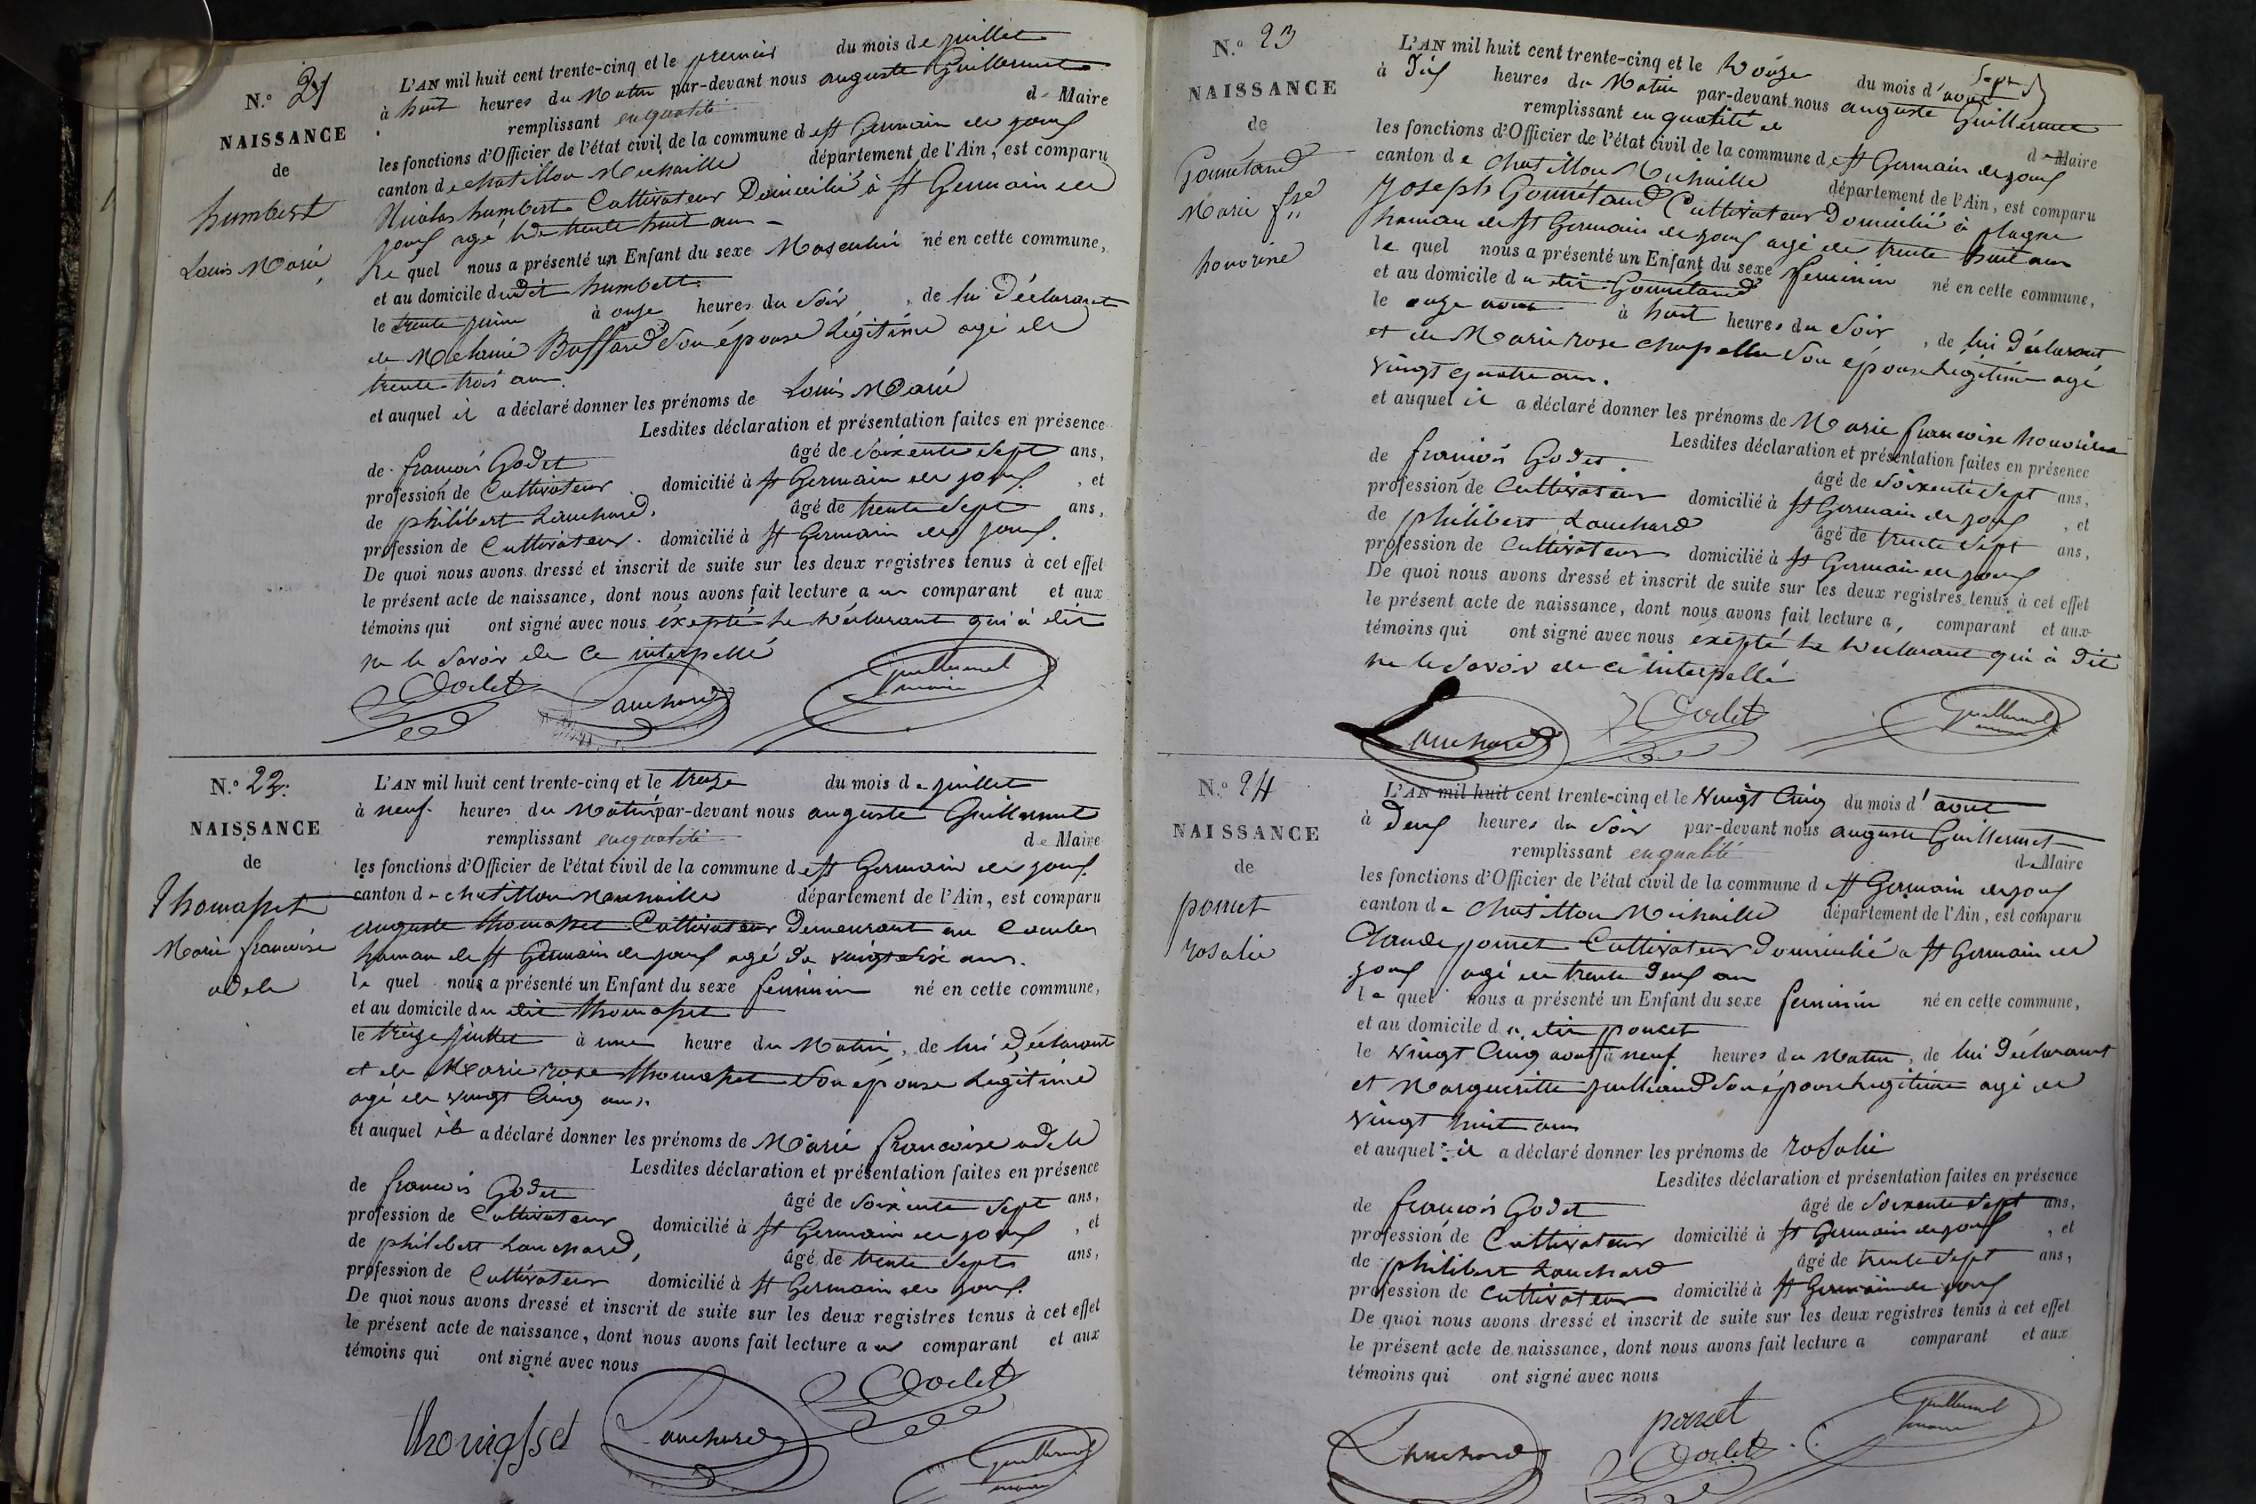 N.° 21
NAISSANCE
de
humbert
Louis Marie
L'AN mil huit cent trente-cinq et le premier du mois de juillet
à huit heures du Matin par-devant nous auguste Guillermet
remplissant en qualité de Maire
les fonctions d'Officier de l'état civil de la commune de St Germain de joux
canton de chatillon Michaille département de l'Ain, est comparu
Nicolas humbert Cultivateur Domicilié à St Germain de
joux agé de trente huit ans
Le quel nous a présenté un Enfant du sexe Masculin né en cette commune,
et au domicile dudit humbert
le trente juin à onze heures du Soir, de lui Déclarant
et de Melanie Buffard Son épouse légitime agé de
trente trois ans.
et auquel il a déclaré donner les prénoms de Louis Marie
Lesdites déclaration et présentation faites en présence
de francois Godet âgé de Soixente Sept ans,
profession de Cultivateur domicilié à St Germain de joux, et
de philibert Lanchard, âgé de trente Sept ans,
profession de Cultivateur domicilié à St Germain de joux.
De quoi nous avons dressé et inscrit de suite sur les deux registres tenus à cet effet
le présent acte de naissance, dont nous avons fait lecture au comparant et aux
témoins qui ont signé avec nous éxepté le déclarant qui à dit
ne le Savoir de ce interpellé
Godet Lanchard Guillermet maire
N.° 22.
NAISSANCE
de
Thomasset
Marie francoise
adele
L'AN mil huit cent trente-cinq et le treize du mois de juillet
à neuf heures du Matin par-devant nous auguste Guillermet
remplissant en qualité de Maire
les fonctions d'Officier de l'état civil de la commune de St Germain de joux
canton de chatillon Michaille département de l'Ain, est comparu
auguste thomasset Cultivateur Demeurant au Combes
hamau de St Germain de joux agé de vingt six ans.
le quel nous a présenté un Enfant du sexe feminin né en cette commune,
et au domicile du dit thomasset
le treize juillet à une heure du Matin, de lui Déclarant
et de Marie rose thomasset Son épouse Legitime
agé de vingt Cinq ans.
et auquel il a déclaré donner les prénoms de Marie francoise adele
Lesdites déclaration et présentation faites en présence
de francois Godet âgé de Soixente Sept ans,
profession de Cultivateur domicilié à St Germain de joux, et
de philibert Lanchard, âgé de trente Sept ans,
profession de Cultivateur domicilié à St Germain de joux.
De quoi nous avons dressé et inscrit de suite sur les deux registres tenus à cet effet
le présent acte de naissance, dont nous avons fait lecture au comparant et aux
témoins qui ont signé avec nous
thomasset Lanchard Godet Guillermet maire
N.° 23
NAISSANCE
de
Gounetand
Marie fse
honorine
L'AN mil huit cent trente-cinq et le Douze du mois d'aout
à Dix heures du Matin par-devant nous auguste Guillermet
remplissant en qualité de de Maire
les fonctions d'Officier de l'état civil de la commune de St Germain de joux
canton de chatillon Michaille département de l'Ain, est comparu
joseph Gounetand Cultivateur Domicilié à plagne
hamau de St Germain de joux agé de trente huit ans
le quel nous a présenté un Enfant du sexe feminin né en cette commune,
et au domicile du dit Gounetand
le onze aout à huit heures du Soir, de lui Déclarant
et de Marie rose chapelle Son épouse Légitime agé
vingt quatre ans.
et auquel il a déclaré donner les prénoms de Marie francoise honorine
Lesdites déclaration et présentation faites en présence
de francois Godet. âgé de Soixente Sept ans,
profession de Cultivateur domicilié à St Germain de joux, et
de philibert Lanchard âgé de trente Sept ans,
profession de Cultivateur domicilié à St Germain de joux
De quoi nous avons dressé et inscrit de suite sur les deux registres tenus à cet effet
le présent acte de naissance, dont nous avons fait lecture a comparant et aux
témoins qui ont signé avec nous éxepté le declarant qui à dit
ne le Savoir de ce interpellé
Lanchard Godet Guillermet maire
N.° 24
NAISSANCE
de
poncet
rosalie
L'AN mil huit cent trente-cinq et le vingt Cinq du mois d'aout
à Deux heures du Soir par-devant nous auguste Guillermet
remplissant en qualité de Maire
les fonctions d'Officier de l'état civil de la commune de St Germain de joux
canton de Chatillon Michaille département de l'Ain, est comparu
Claude poncet Cultivateur Domicilié a St Germain de
joux agé de trente Deux ans
le quel nous a présenté un Enfant du sexe feminin né en cette commune,
et au domicile du dit poncet
le vingt Cinq aout à neuf heures du Matin, de lui Déclarant
et Margueritte juilliand Son épouse Legitime agé de
vingt huit ans
et auquel il a déclaré donner les prénoms de rosalie
Lesdites déclaration et présentation faites en présence
de francois Godet âgé de Soixente Sept ans,
profession de Cultivateur domicilié à St Germain de joux, et
de philibert Lanchard âgé de trente Sept ans,
profession de Cultivateur domicilié à St Germain de joux
De quoi nous avons dressé et inscrit de suite sur les deux registres tenus à cet effet
le présent acte de naissance, dont nous avons fait lecture a comparant et aux
témoins qui ont signé avec nous
Lanchard poncet Godet Guillermet maire